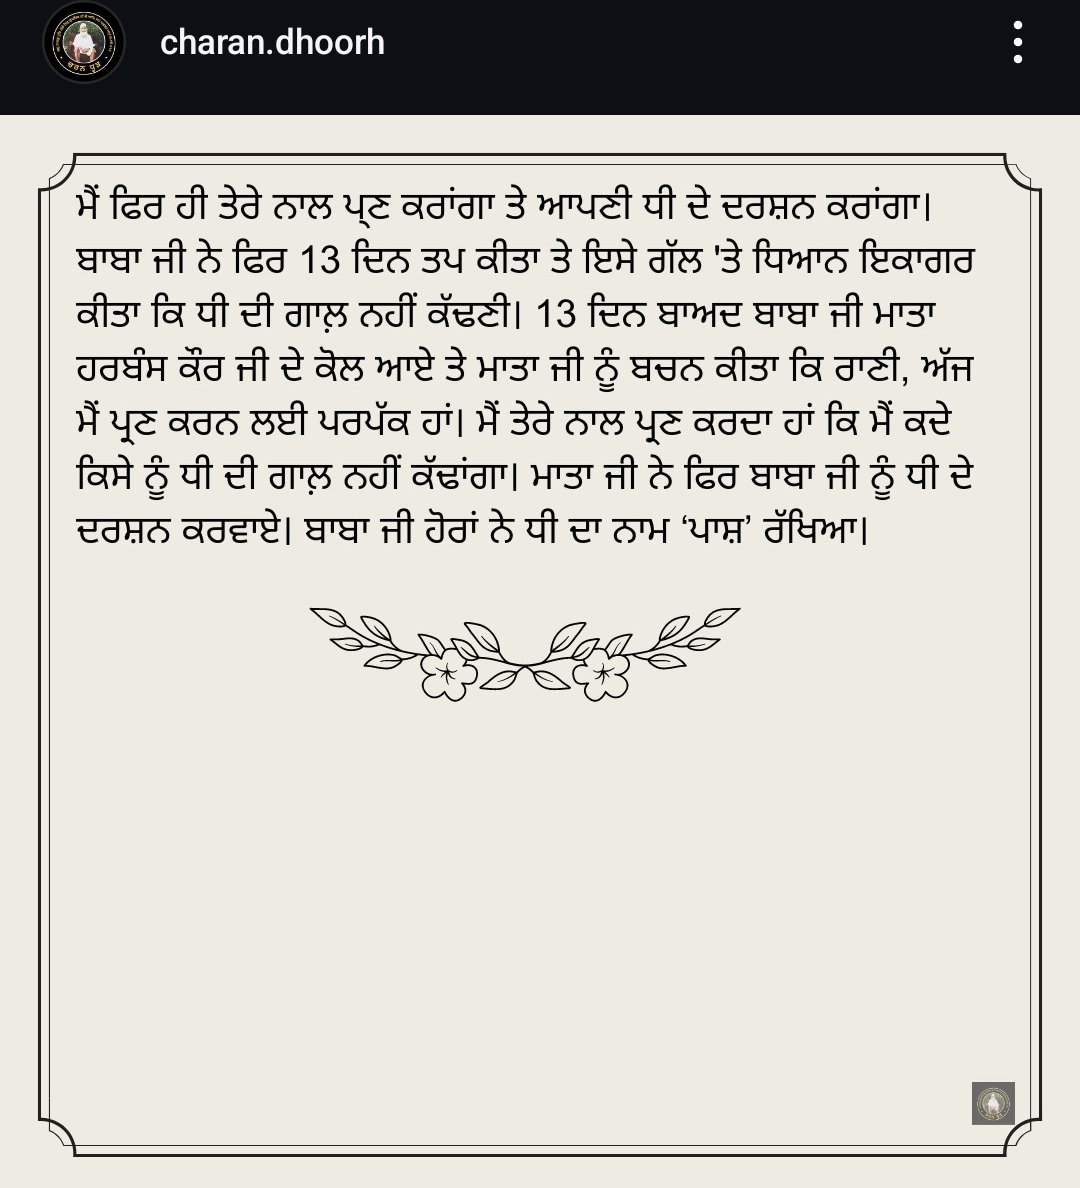 charan.dhoorh
ਮੈਂ ਫਿਰ ਹੀ ਤੇਰੇ ਨਾਲ ਪ੍ਣ ਕਰਾਂਗਾ ਤੇ ਆਪਣੀ ਧੀ ਦੇ ਦਰਸ਼ਨ ਕਰਾਂਗਾ।
ਬਾਬਾ ਜੀ ਨੇ ਫਿਰ 13 ਦਿਨ ਤਪ ਕੀਤਾ ਤੇ ਇਸੇ ਗੱਲ 'ਤੇ ਧਿਆਨ ਇਕਾਗਰ
ਕੀਤਾ ਕਿ ਧੀ ਦੀ ਗਾਲ਼ ਨਹੀਂ ਕੱਢਣੀ। 13 ਦਿਨ ਬਾਅਦ ਬਾਬਾ ਜੀ ਮਾਤਾ
ਹਰਬੰਸ ਕੌਰ ਜੀ ਦੇ ਕੋਲ ਆਏ ਤੇ ਮਾਤਾ ਜੀ ਨੂੰ ਬਚਨ ਕੀਤਾ ਕਿ ਰਾਣੀ, ਅੱਜ
ਮੈਂ ਪ੍ਰਣ ਕਰਨ ਲਈ ਪਰਪੱਕ ਹਾਂ। ਮੈਂ ਤੇਰੇ ਨਾਲ ਪ੍ਰਣ ਕਰਦਾ ਹਾਂ ਕਿ ਮੈਂ ਕਦੇ
ਕਿਸੇ ਨੂੰ ਧੀ ਦੀ ਗਾਲ਼ ਨਹੀਂ ਕੱਢਾਂਗਾ। ਮਾਤਾ ਜੀ ਨੇ ਫਿਰ ਬਾਬਾ ਜੀ ਨੂੰ ਧੀ ਦੇ
ਦਰਸ਼ਨ ਕਰਵਾਏ। ਬਾਬਾ ਜੀ ਹੋਰਾਂ ਨੇ ਧੀ ਦਾ ਨਾਮ ‘ਪਾਸ਼’ ਰੱਖਿਆ।